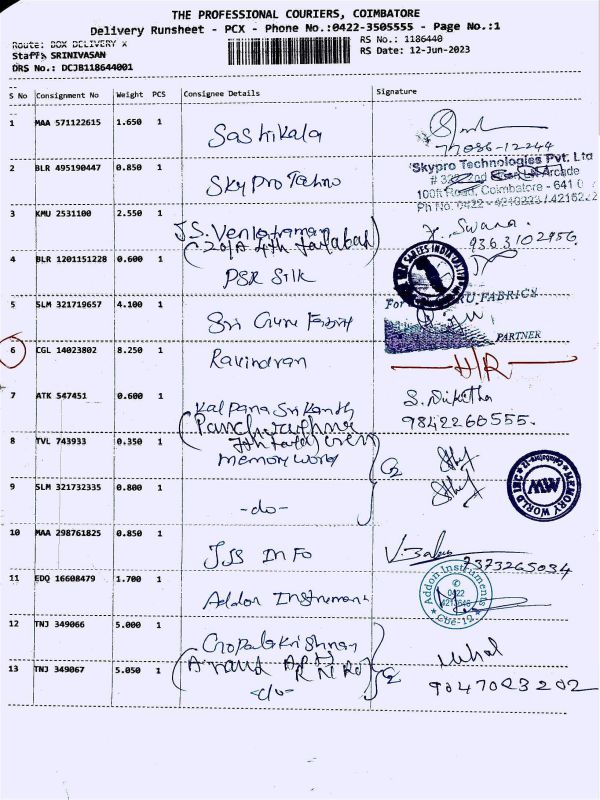 THE PROFESSIONAL COURIERS, COIMBATORE
Delivery Runsheet - PCX - Phone No.:0422-3505555 - Page No.:1
Route: BOX DELIVERY X
RS No.: 1186440
Staff: SRINIVASAN
RS Date: 12-Jun-2023
DRS No.: DCJB118644001
S No Consignment No Weight PCS Consignee Details Signature
1 MAA 571122615 1.650 1 Sashikala
77086-12244
2 BLR 495190447 0.850 1 Sky Pro Techno
Skypro Technologies Pvt. Ltd
Arcade
100ft Road, Coimbatore - 641 0
3 KMU 2531100 2.550 1 J.S. Venkatraman
93631 02956
4 BLR 1201151228 0.600 1 PSR Silk
SAREES INDIA
5 SLM 321719657 4.100 1 Sri Guru Fabric
For
RU FABRICS
PARTNER
6 CGL 14023802 8.250 1 Ravindran H/R
7 ATK 547451 0.600 1 Kalpana Srikanth S. Niketha
9842260555.
8 TVL 743933 0.350 1 memory world
9 SLM 321732335 0.800 1 -do-
MEMORY WORLD INC
Coimbatore-12
MW
10 MAA 298761825 0.850 1 JJS Info
7373265034
11 EDQ 16608479 1.700 1 Addon Instrument
Addon Instruments
0422
CBE-12
12 TNJ 349066 5.000 1 Gopalakrishnan
13 TNJ 349067 5.050 1 -do-
9047023202